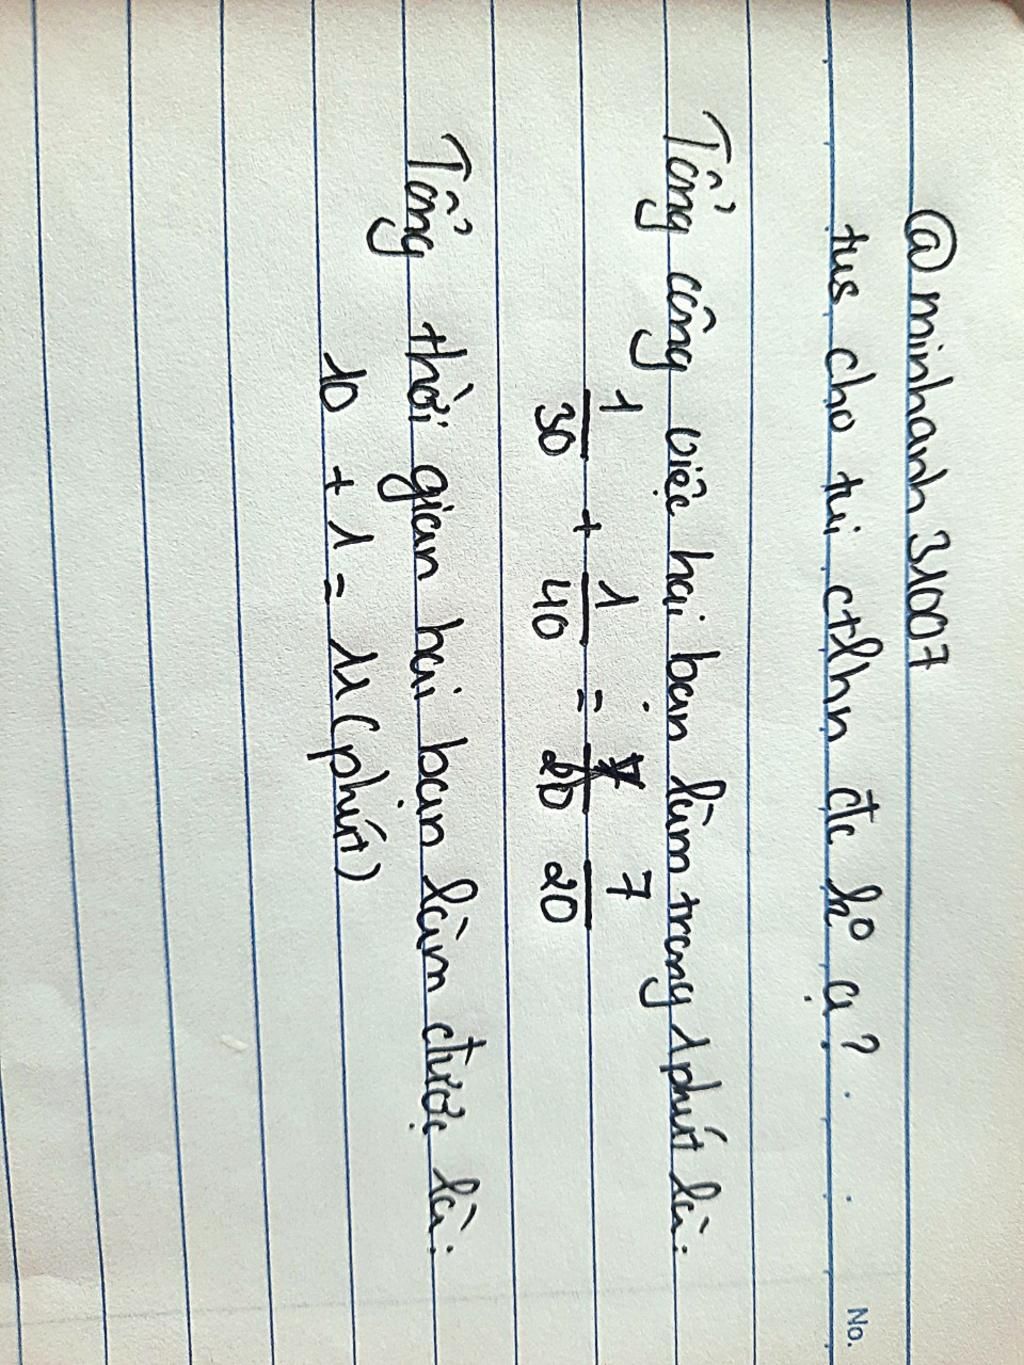 No.
@minhanh31007
tus cho tui ctlhn đc ko ạ?
Tổng công việc hai bạn làm trong 1 phút là:
1/30 + 1/40 = 7/20 7/20
Tổng thời gian hai bạn làm được là:
10 + 1 = 11 (phút)